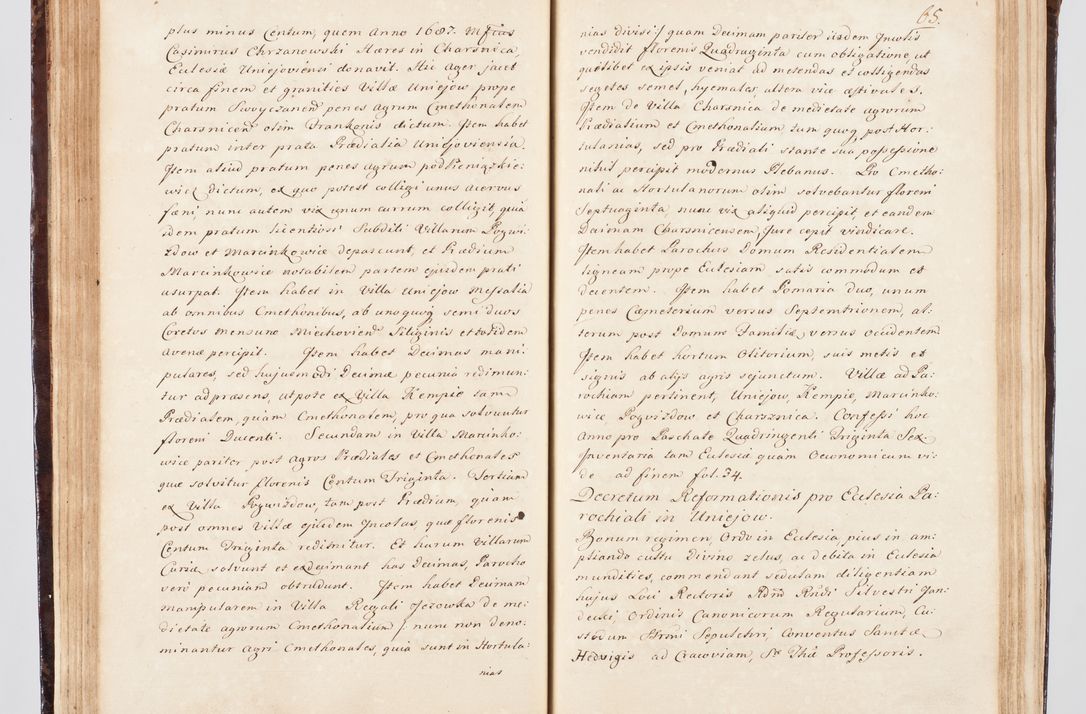 plus minus Centum, quem Anno 1687. Mfcus
Casimirus Chrzanowski Hæres in Charsnica
Eclesiæ Uniejoviensi donavit. Hic Ager jacet
circa finem et granities Villæ Uniejow prope
pratum penes agrum Cmethonalem
Charsnicen olim Drankonis dictum. Jtem habet
pratum inter prata Prædialia Uniejoviensia.
Jtem aliud pratum penes agrum podPieniązkie:
wick dictum, ex quo potest colligi unus Acervus
fæni, nunc autem vix unum currum colligit, quia
idem pratum licentiose Subditi Villarum Pogwi:
zdow et Marcinkowice depascunt, et Prædium
Marcinkowice notabilem partem ejusdem prati
usurpat. Jtem habet in Villa Uniejow Messalia
ab omnibus Cmethonibus, ab unoquoq semi duos
Coretos mensuræ Miechovien Siliginis et totidem
Avenæ percipit. Jtem habet Decimas mani:
pulares, sed hujusmodi Decimæ pecunia redimun:
tur ad præsens, utpote ex Villa Kempie tam
Prædialem, quàm Cmethonalem, pro qua solvuntur
floreni Ducenti. Secundam in Villa Marcinko:
wice pariter post Agros Prædiales et Cmethonales
quæ solvitur florenis Centum Triginta. Tertiam
ex Villa Pogwizdow, tam post Prædium, quam
post omnes Villæ ejusdem Jncolas, quæ florenis
Centum Triginta redimitur. Et harum Villarum
Curiæ solvunt et exdecimant has Decimas, Parocho
verò pecuniam obtrudunt. Jtem habet Decimam
manipularem in Villa Regali Jezowka de me:
dietate agrorum Cmethonalium /: nunc non deno:
minantur Agri Cmethonales, quia sunt in Hortula:
nias
65.
nias divisi:/ quam Decimam pariter iisdem Jncolis
vendidit florenis Quadraginta cum obligatione, ut
quilibet ex ipsis veniat ad metendas et colligendas
segetes semel, hyemales, altera vice æstivales.
Jtem de Villa Charsnica de medietate agrorum
Prædialium et Cmethonalium tum quoq, post Hor:
tulanias, sed pro Prædiali stante sua possessione
nihil percipit modernus Plebanus. Pro Cmetho:
nali ac Hortulanorum olim solvebantur floreni
Septuaginta, nunc vix aliquid percipit, et eandem
Decimam Charsnicensem, Jure cepit vindicare.
Jtem habet Parochus Domum Residentialem
ligneam prope Eclesiam satis commodam et
decentem. Jtem habet Pomaria duo, unum
penes Cæmeterium versus Septemtrionem, al:
terum post Domum Familiæ, versus Occidentem
Jtem habet hortum Olitorium, suis metis et
signis ab alijs agris sejunctum. Villæ ad Pa:
rochiam pertinent, Uniejow, Kempie, Marcinko:
wice, Pogwizdow et Charsznica. Confessi hoc
Anno pro Paschate Quadringenti Triginta Sex.
Jnventaria tam Eclesiæ quàm Oeconomicum vi:
de ad finem fol. 34.
Decretum Reformationis pro Eclesia Pa:
rochiali in Uniejow.
Bonum regimen, Ordo in Eclesia, pius in am:
pliando cultu Divino zelus, ac debita in Eclesia
mundities, commendant sedulam diligentiam
hujus Loci Rectoris Adm Rndi Silvestri Jan:
decki, Ordinis Canonicorum Regularium, Cu:
stodum Ssmi Sepulchri, Conventus Sanctæ
Hedvigis ad Cracoviam, Professoris.